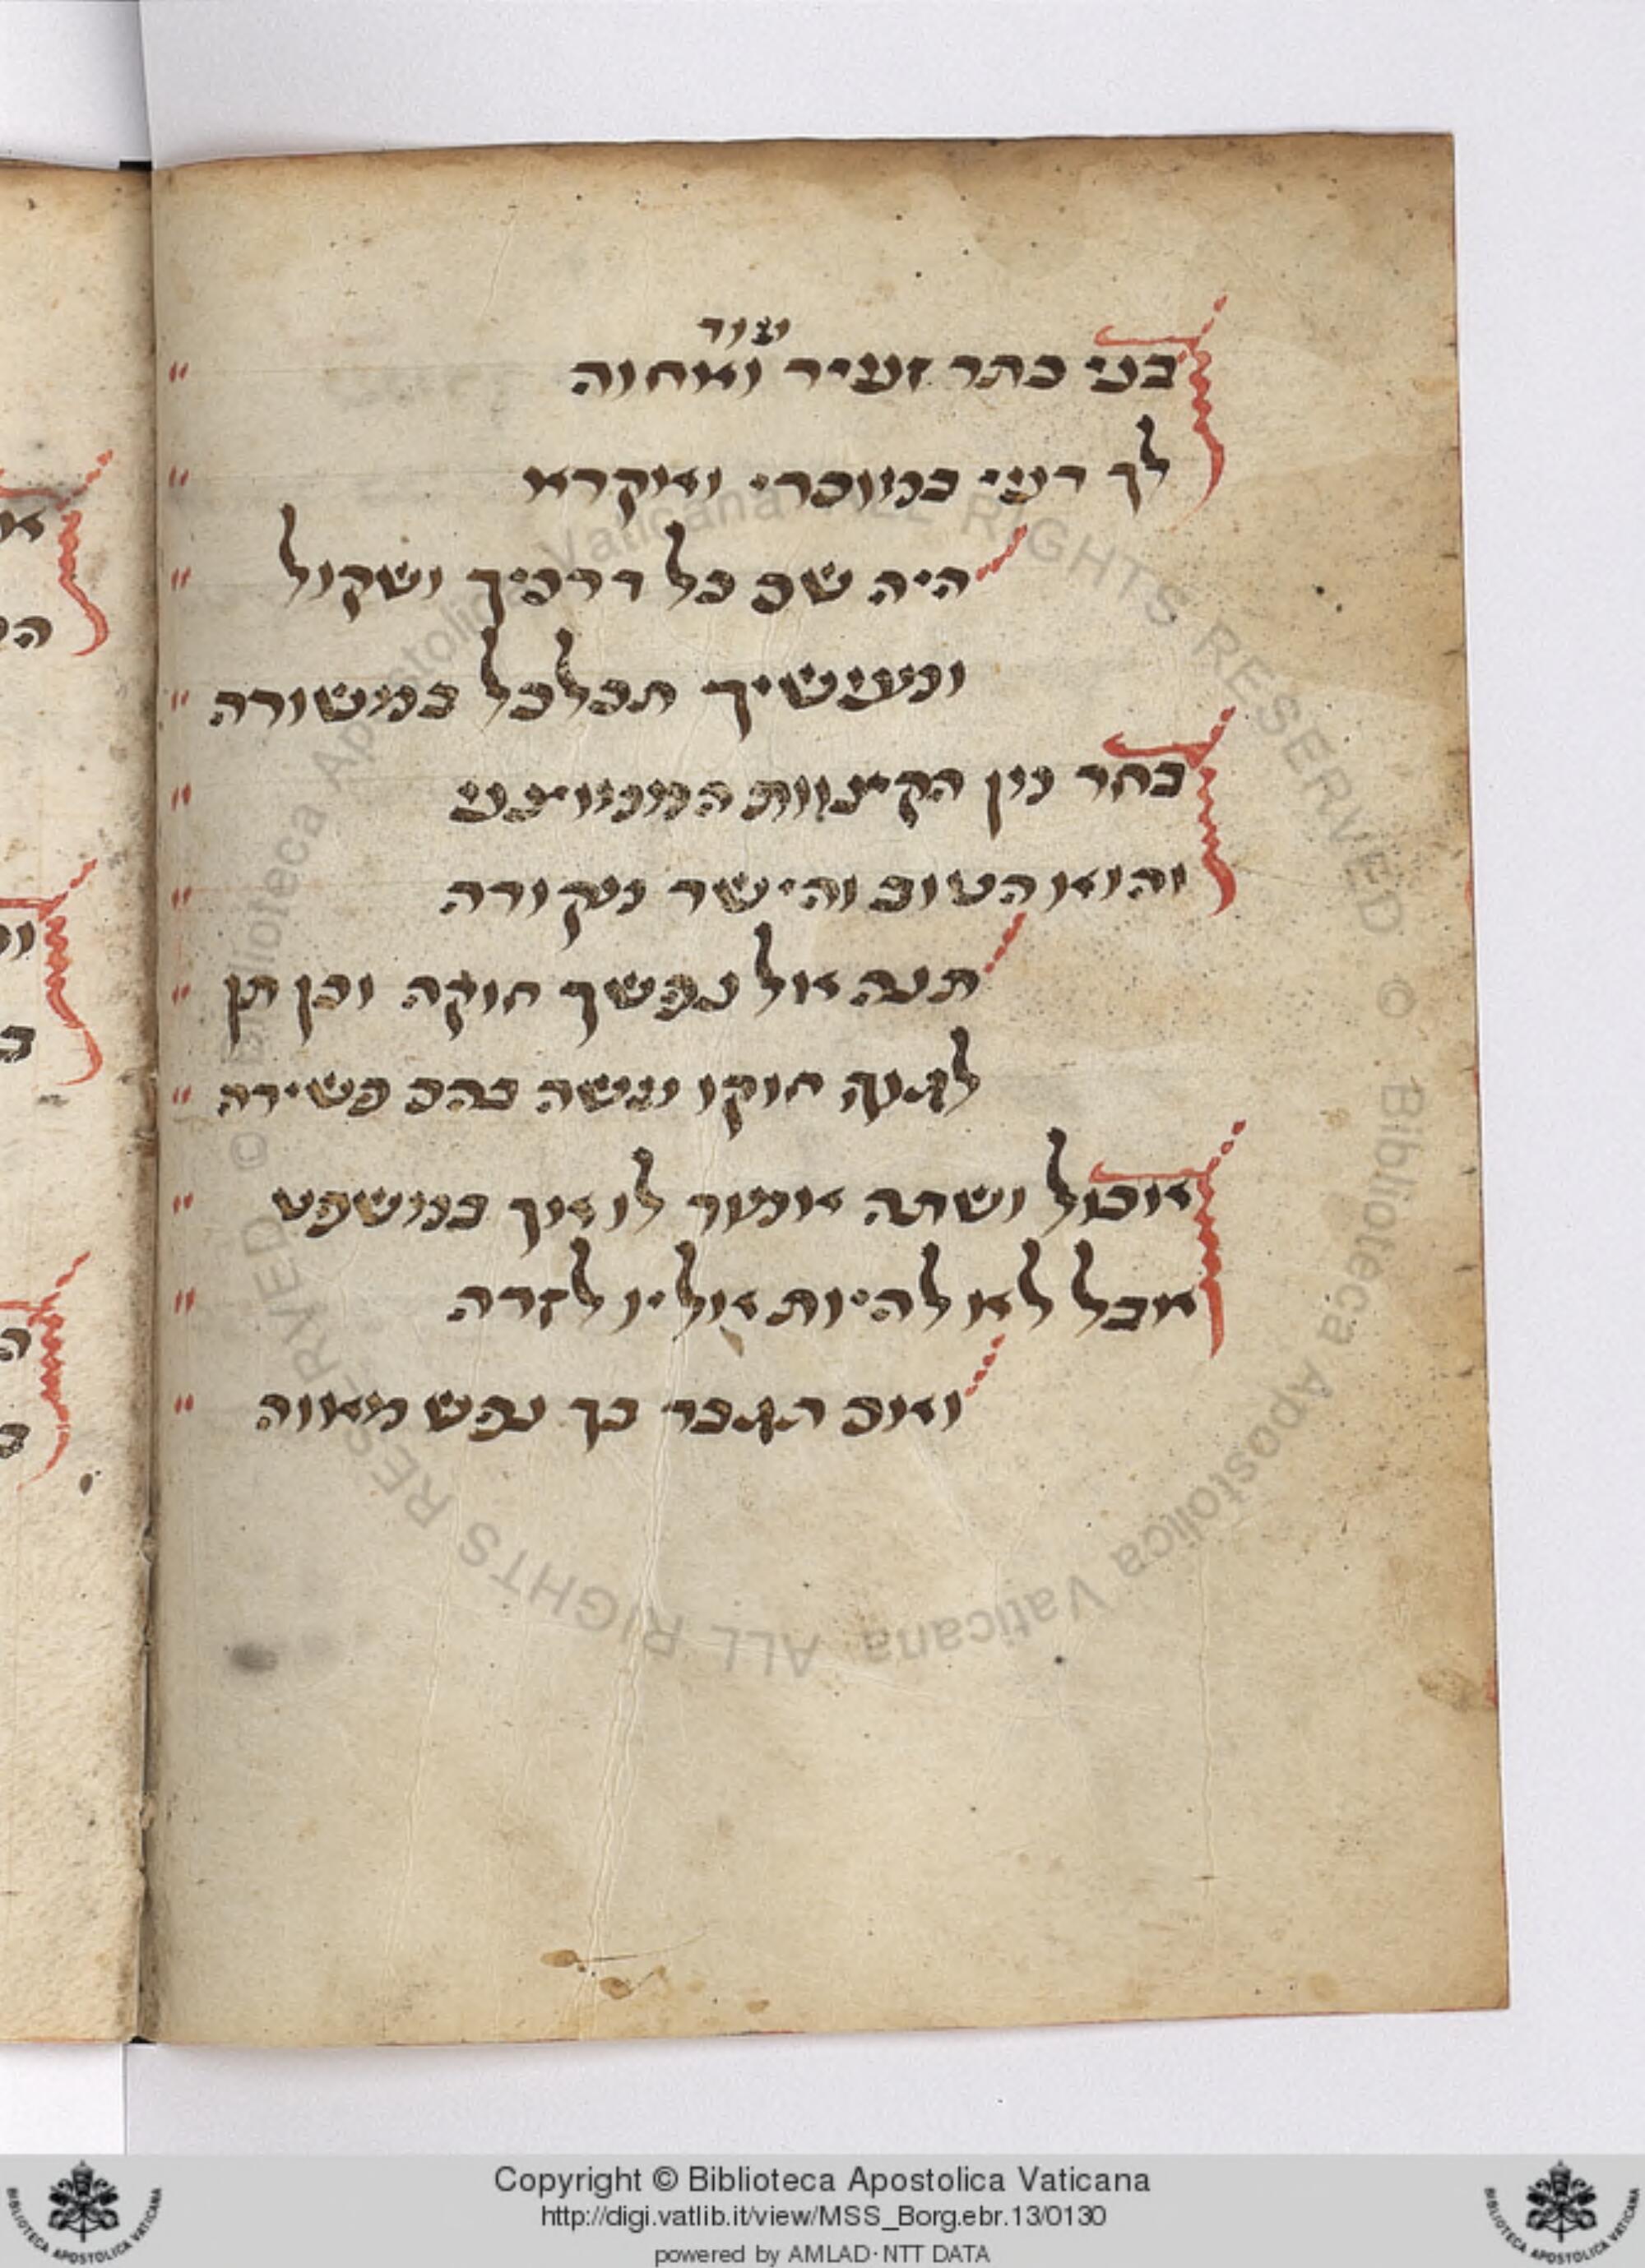 עוד
בני כתר זעיר ואחוה
לך דעי במספרי ואקרא
היה שם כל דרכיך ושקול
ומעשיך תכלכל במשורה
בחר מן הקצוות הממוצע
והוא הטוב והישר מקורה
תנה אל נפשך חוקה וכן תן
לגוף חוקו ועשה בהם פשירה
אכול ושתה אמור לו אך במשפט
אבל לא להיות אליו לזרה
ואם תגבר בך נפש מאוה
Copyright © Biblioteca Apostolica Vaticana
http://digi.vatlib.it/view/MSS_Borg.ebr.13/0130
powered by AMLAD·NTT DATA